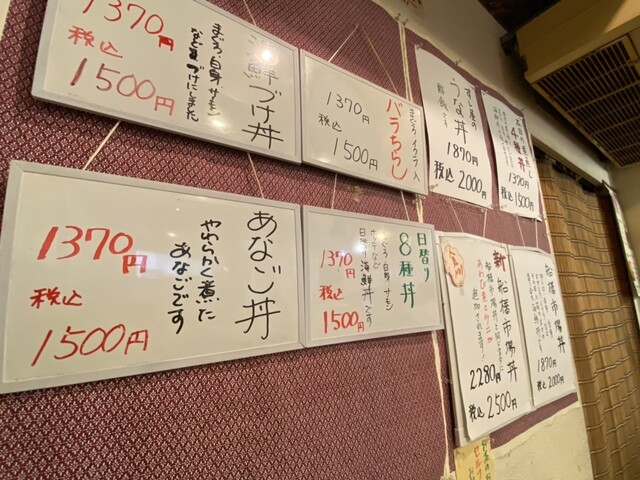 海鮮づけ丼
まぐろ 白身 サーモン
など をづけにしました
1370円
税込
1500円
まぐろ イクラ入
バラちらし
1370円
税込
1500円
すし屋の
うな丼
1870円
税込 2000円
4種丼
1370円
税込 1500円
あなご丼
やわらかく煮た
あなごです
1370円
税込
1500円
日替り
8種丼
まぐろ 白身 サーモン
日替り海鮮丼です
1370円
税込
1500円
新 船橋市場丼
追加されます!
2280円
税込 2500円
船橋市場丼
1870円
税込 2000円